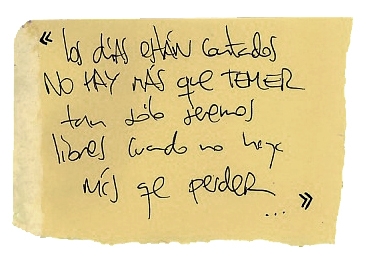 « los días están contados
NO HAY MÁS que TEMER
tan sólo seremos
libres cuando no haya
más qe perder
... »